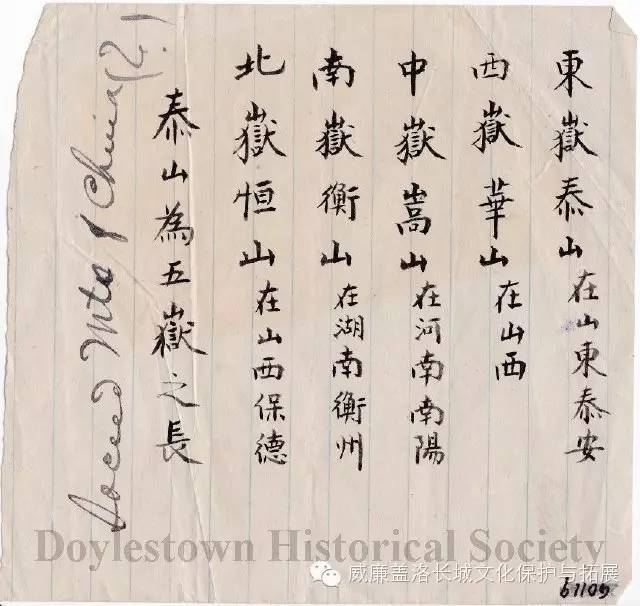 東嶽泰山在山東泰安
西嶽華山在山西
中嶽嵩山在河南南陽
南嶽衡山在湖南衡州
北嶽恒山在山西保德
泰山為五嶽之長
Sacred Mts of China (?)
Doylestown Historical Society
威廉盖洛长城文化保护与拓展